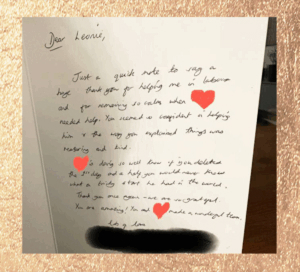 Dear Leonie,
Just a quick note to say a
huge thank you for helping me in labour
and for remaining so calm when
needed help. You seemed so confident in helping
him & the way you explained things was
reassuring and kind.
is doing so well now if you deleted
the 1st days and a help you would never know
what a tricky start he had in the world.
Thank you once again - we are so grateful
You are amazing! You and made a wonderful team.
Lots of love